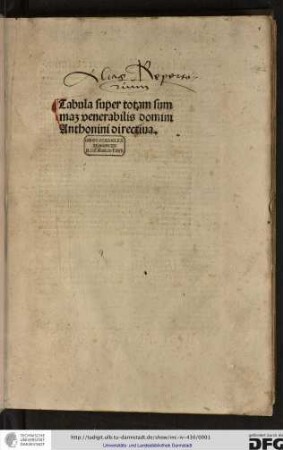 Alias Reperto-
rium
Tabula super totam sum
maʒ venerabilis domini
Anthonini directiua.
TECHNISCHE
UNIVERSITÄT
DARMSTADT
http://tudigit.ulb.tu-darmstadt.de/show/inc-iv-430/0001
Universitäts- und Landesbibliothek Darmstadt
gefördert durch die
DFG